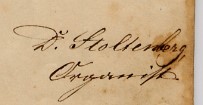 D. Stoltenberg
Organist